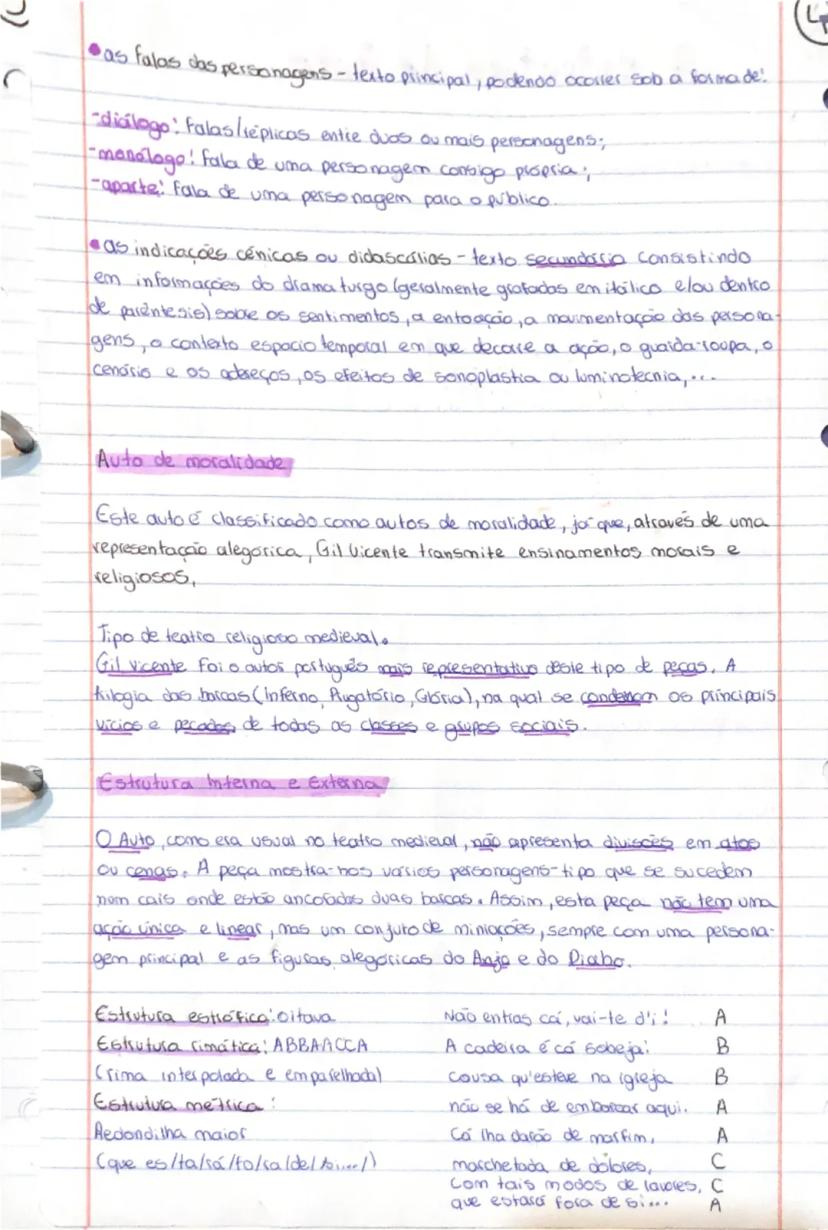 •as falas das personagens - texto principal, podendo ocorrer sob a forma de:
-diálogo: falas/réplicas entre duas ou mais personagens;
-monólogo: fala de uma personagem consigo própria;
-aparte: fala de uma personagem para o público.
•as indicações cénicas ou didascálias - texto secundário consistindo
em informações do dramaturgo (geralmente grafadas em itálico e/ou dentro
de parêntesis) sobre os sentimentos, a entoação, a movimentação das persona-
gens, o contexto espacio temporal em que decorre a ação, o guarda-roupa, o
cenário e os adereços, os efeitos de sonoplastia ou luminotecnia,...
Auto de moralidade
Este auto é classificado como autos de moralidade, já que, através de uma
representação alegórica, Gil Vicente transmite ensinamentos morais e
religiosos,
Tipo de teatro religioso medieval.
Gil Vicente foi o autor português mais representativo deste tipo de peças. A
trilogia das barcas (Inferno, Purgatório, Glória), na qual se condenam os principais
vícios e pecados, de todas as classes e grupos sociais.
Estrutura Interna e Externa
O Auto, como era usual no teatro medieval, não apresenta divisões em atos
ou cenas. A peça mostra-nos vários personagens-tipo que se sucedem
num cais onde estão ancoradas duas barcas. Assim, esta peça não tem uma
ação única e linear, mas um conjuto de miniações, sempre com uma persona-
gem principal e as figuras alegóricas do Anjo e do Diabo.
Estrutura estrófica: oitava
Estrutura rimática: ABBAACCA
(rima interpolada e emparelhada)
Estrutura métrica:
Redondilha maior
(que es/ta/rá/fo/ra/de/si.../)
Não entras cá, vai-te d'i! A
A cadeira é cá sobeja: B
cousa qu'esteve na igreja B
não se há de embarcar aqui. A
Cá lha darão de marfim, A
marchetada de dolores, C
com tais modos de lavores, C
que estará fora de si... A